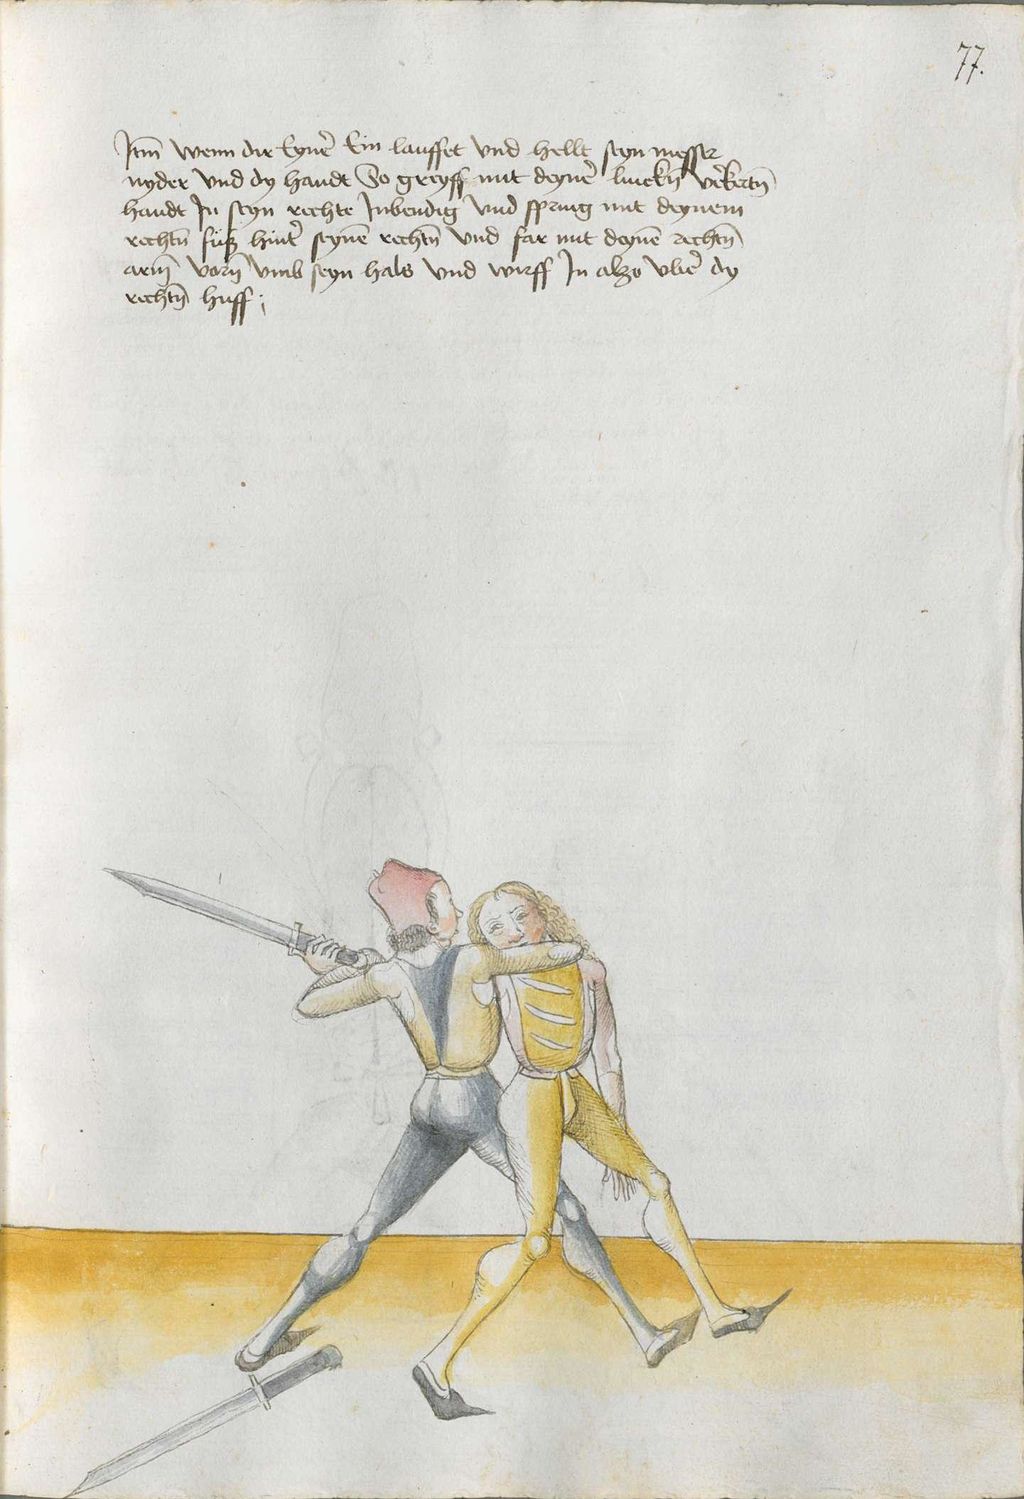 77.
Itm wenn dir Eynẽ Ein lauffet vnd hellt seyn messer
nyder vnd dy handt So greyff mit deynẽ linckñ vẽkertñ
handt In seyn rechte Inbendig vnd spring mit deynem
rechtñ fuß hintẽ seynẽ rechtñ vnd far mit deynẽ rechtñ
arm̃ vorñ vmb seyn hals vnd wirff In alzo vbeẽ dy
rechtñ huff ;